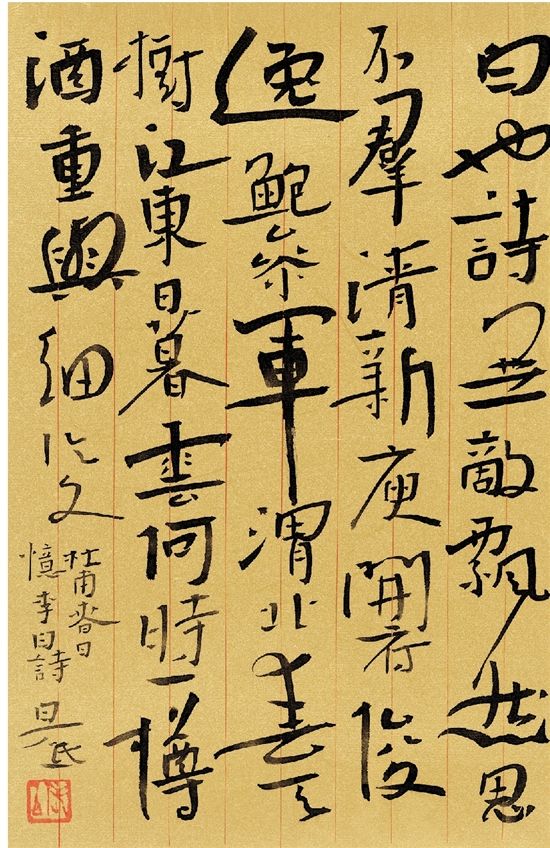 白也詩無敵飄然思
不羣清新庾開府俊
逸鮑參軍渭北春天
樹江東日暮雲何時一樽
酒重與細論文
杜甫春日
憶李白詩